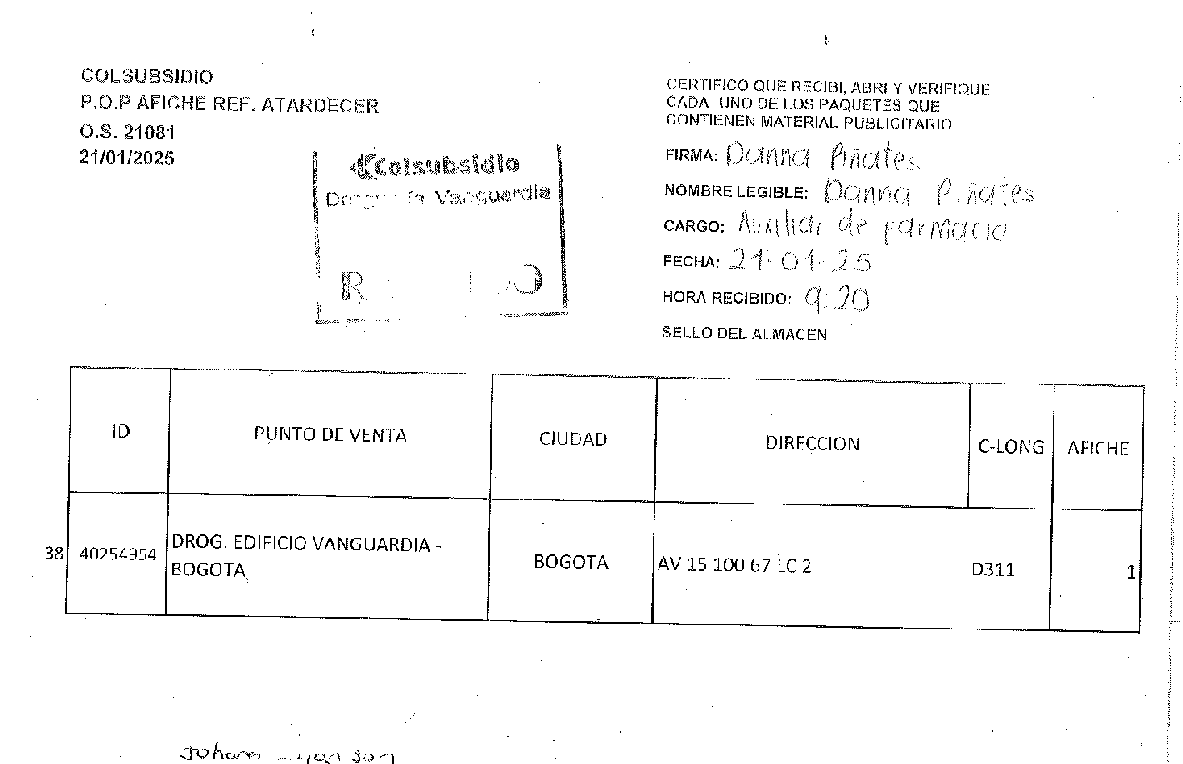 COLSUBSIDIO
P.O.P AFICHE REF. ATARDECER
O.S. 21081
21/01/2025
Colsubsidio
Vanguardia
CERTIFICO QUE RECIBI, ABRI Y VERIFIQUE
CADA UNO DE LOS PAQUETES QUE
CONTIENEN MATERIAL PUBLICITARIO
FIRMA: Danna Piñates
NOMBRE LEGIBLE: Danna Piñates
CARGO: Auxiliar de farmacia
FECHA: 21-01-25
HORA RECIBIDO: 9:20
SELLO DEL ALMACEN
ID PUNTO DE VENTA CIUDAD DIRECCION C-LONG AFICHE
38 40254954 DROG. EDIFICIO VANGUARDIA - BOGOTA BOGOTA AV 15 100 67 LC 2 D311 1
Johan